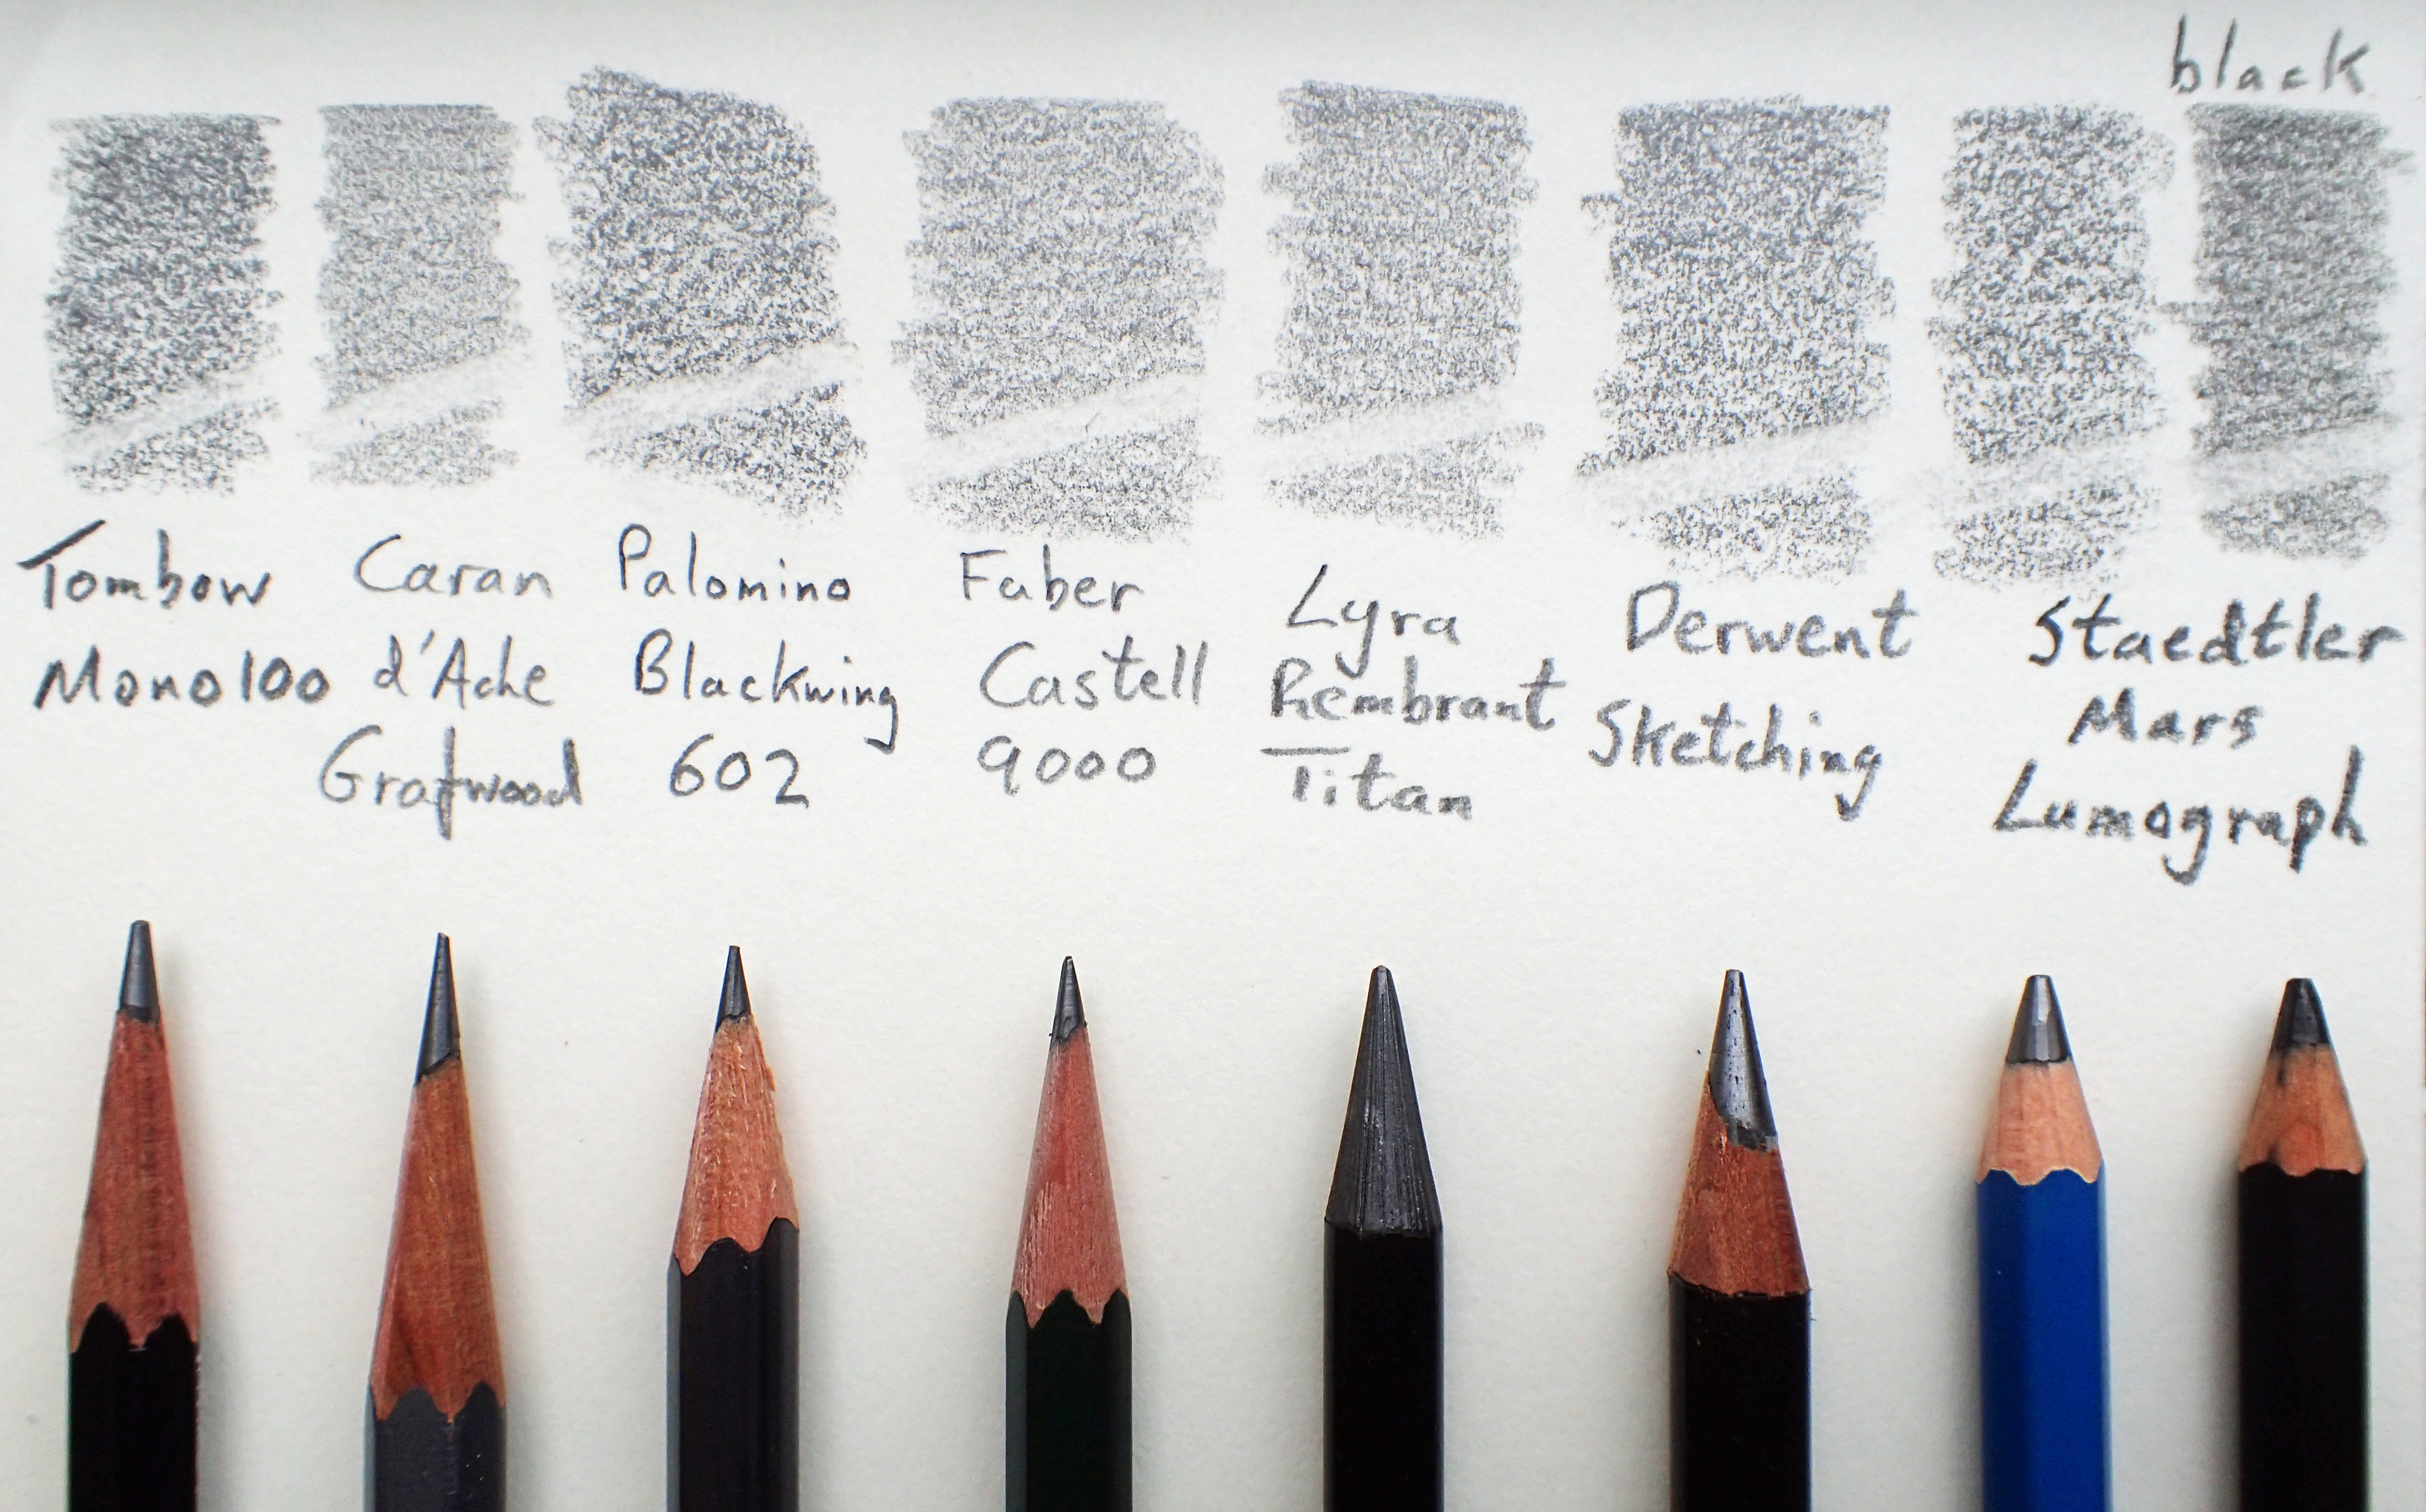 black
Tombow
Mono100
Caran
d'Ache
Grafwood
Palomino
Blackwing
602
Faber
Castell
9000
Lyra
Rembrant
Titan
Derwent
Sketching
Staedtler
Mars
Lumograph